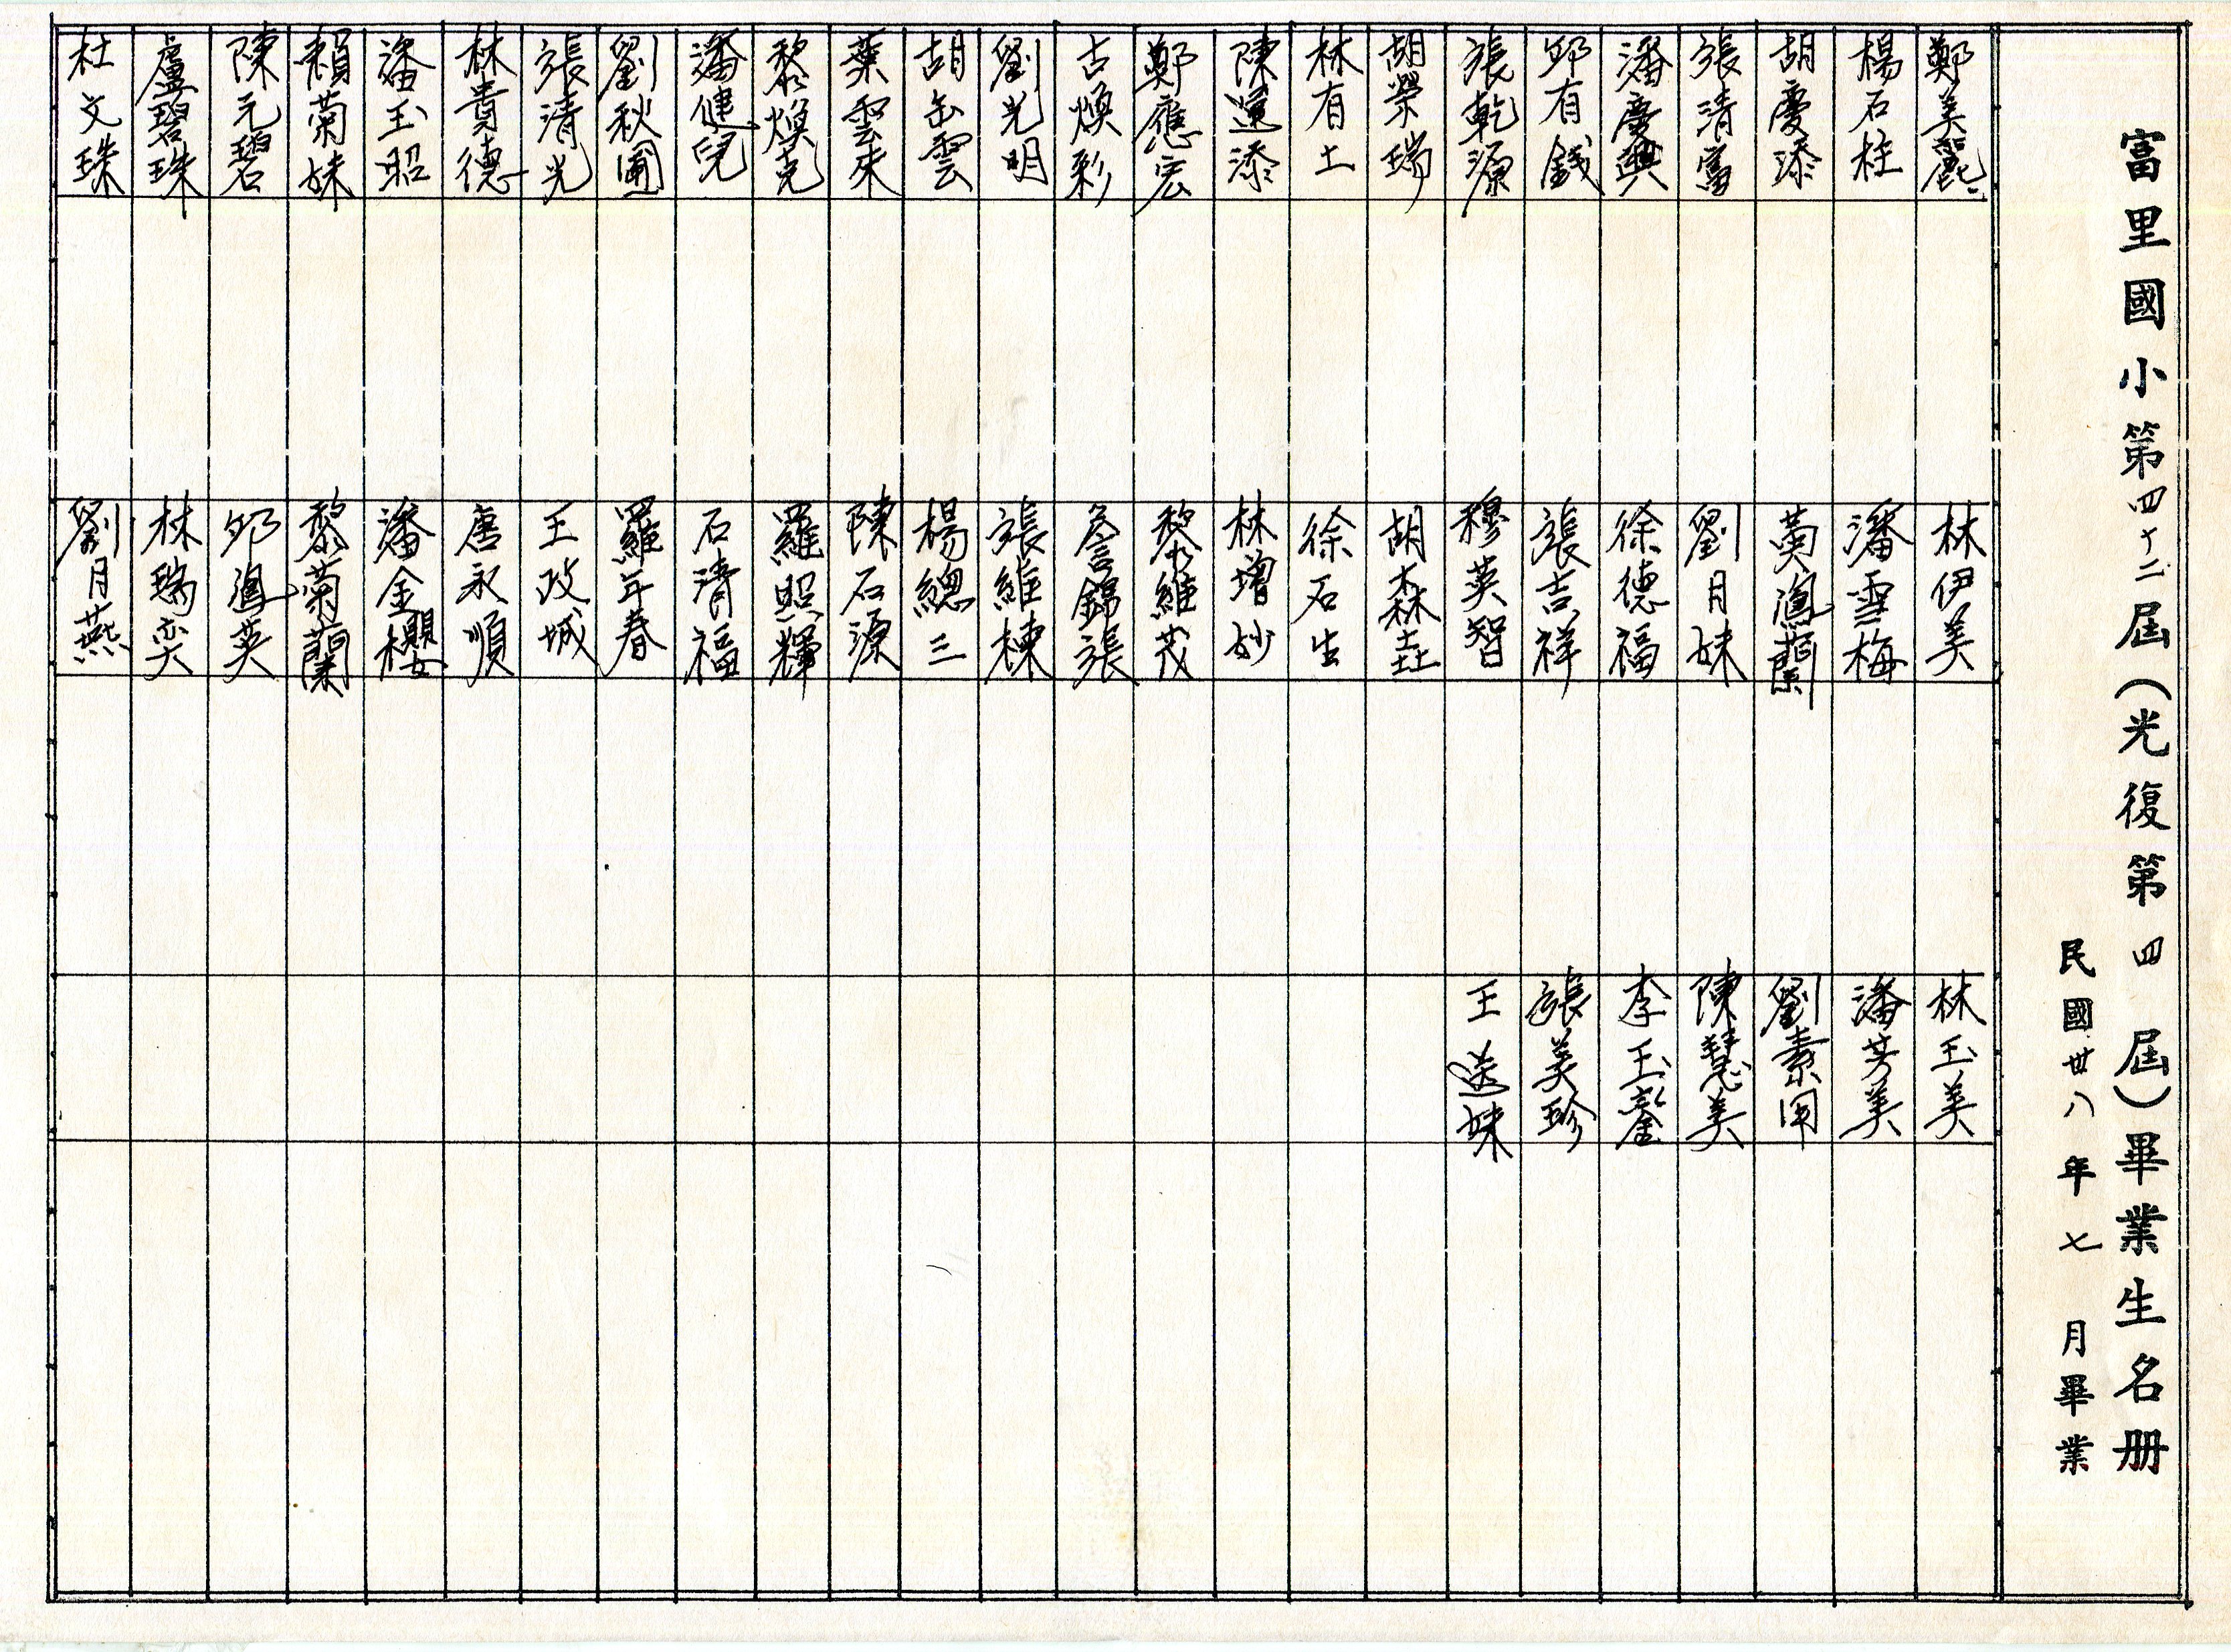 富里國小第四十二屆(光復第四屆)畢業生名册
民國卅八年七月畢業
鄭美麗
楊石柱
胡慶添
張清富
潘慶興
邱有錢
張乾源
胡榮瑞
林有土
陳運添
鄭應宏
古煥彩
劉光明
胡缶雲
葉雲來
黎煥克
潘健兒
劉秋圃
張清光
林貴德
潘玉昭
賴菊妹
陳元碧
盧碧珠
杜文珠
林伊美
潘雪梅
黄鳳蘭
劉月妹
徐德福
張吉祥
穆英智
胡森垚
徐石生
林增妙
黎維茂
詹錦張
張維棟
楊總三
陳石源
羅照輝
石清福
羅年春
王政城
唐永順
潘金櫻
黎菊蘭
邱鳳英
林瑞奕
劉月燕
林玉美
潘芳美
劉素用
陳慧美
李玉
張美珍
王送妹